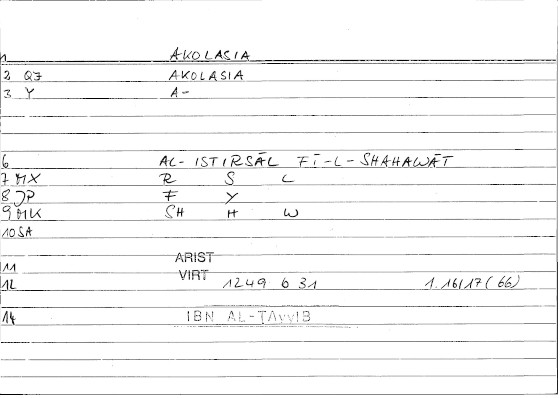 1 AKOLASIA
2 QJ AKOLASIA
3 Y A-
6 AL-ISTIRSĀL FĪ-L-SHAHAWĀT
7 MX R S L
8 JP F Y
9 MK SH H W
10 SA
11 ARIST
12 VIRT 1249 b 31 1.16/17(66)
14 IBN AL-ṬAYYIB